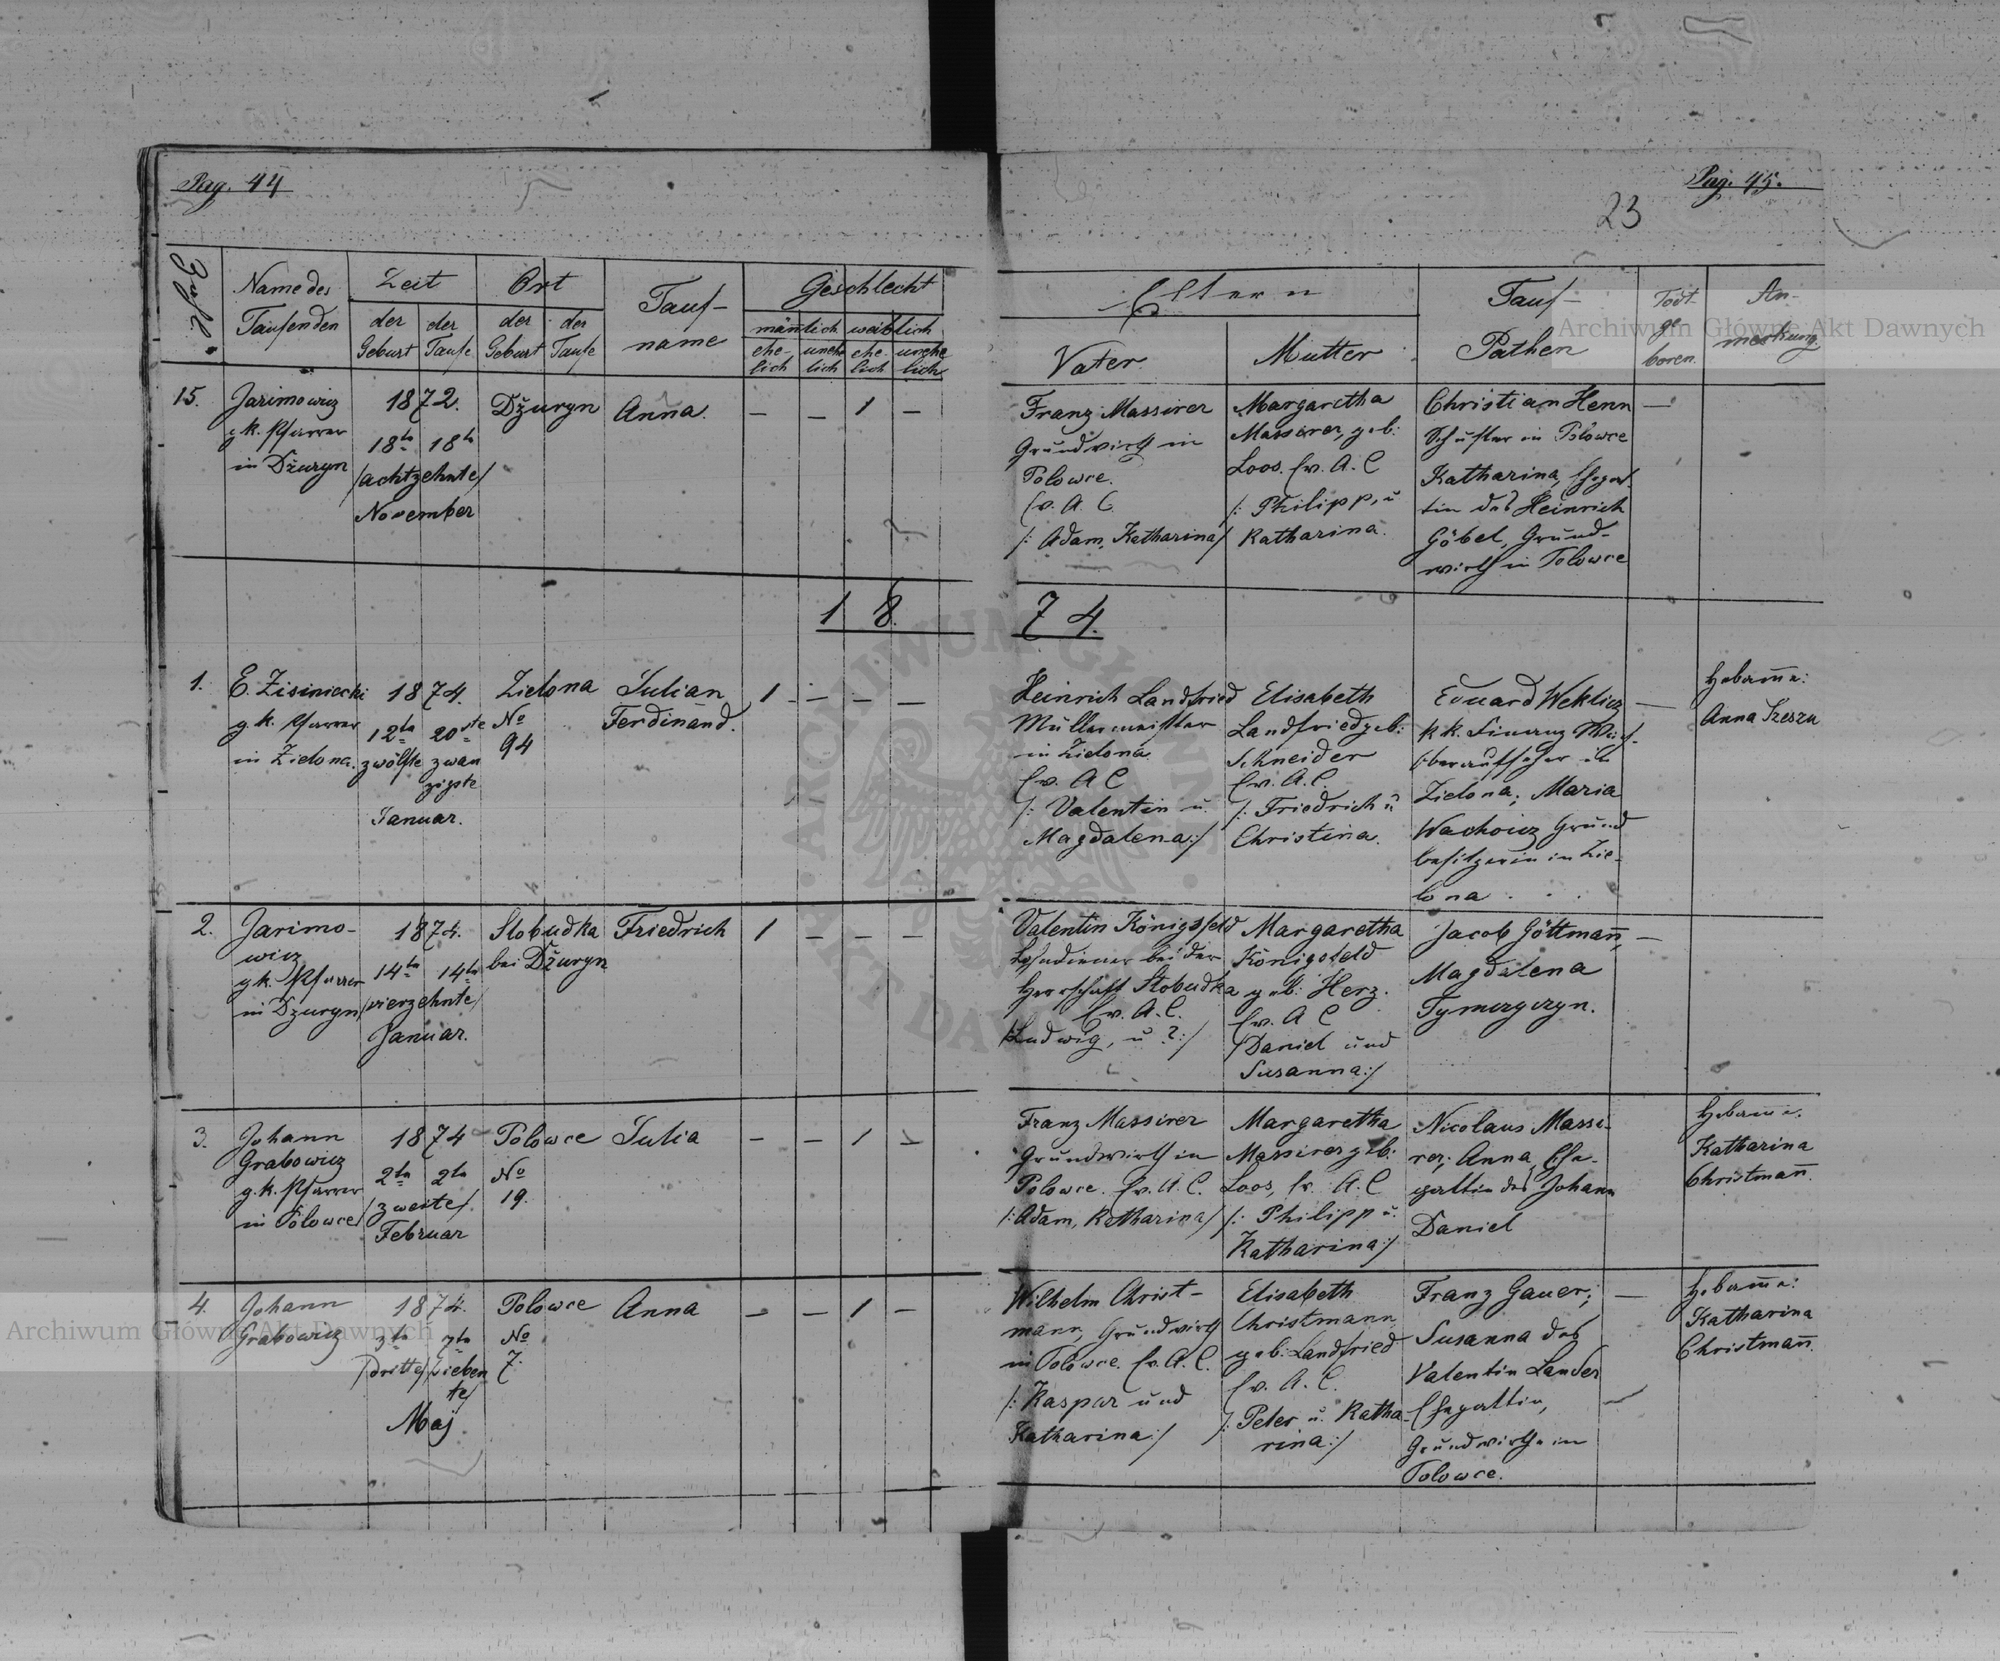 Pag. 44
Pag. 45.
23
Zahl.
Name des Taufenden
Zeit
der Geburt
der Taufe
Ort
der Geburt
der Taufe
Tauf-
name
Geschlecht
mänlich weiblich
ehe-lich
unehe lich
ehe-lich
unehe lich
Eltern
Vater.
Mutter
Tauf-
Pathen
Todt-
ge-
boren.
An-
merkung.
15.
Jarimowicz
g. k. Pfarrer
in Džuryn
1872.
18te 18te
/achtzehnte/
November
Džuryn
Anna.
— — 1 —
Franz Massirer
Grundwirth in
Polowce.
Ev. A. C.
/: Adam, Katharina/
Margaretha
Massirer, geb:
Loos. Ev. A. C
/: Philipp, u
Katharina.
Christian Henn
Schuster in Polowce
Katharina, Ehegat-
tin des Heinrich
Göbel, Grund-
wirth in Polowce
—
18 74.
1.
E. Zisiniecki
g. k. Pfarrer
in Zielona.
1874.
12te 20ste
zwölfte zwan
zigste
Januar.
Zielona
No
94
Julian
Ferdinand.
1 — — —
Heinrich Landfried
Müllermeister
in Zielona
Ev. A C
/: Valentin u.
Magdalena:/
Elisabeth
Landfried geb:
Schneider
Ev. A. C.
/: Friedrich u
Christina.
Eduard Weklicz
k k. Finanz
Oberaufseher in
Zielona; Maria
Wachowicz Grund
besitzerin in Zie-
lona . . .
—
Hebam̅e:
Anna
2.
Jarimo-
wicz
g. k. Pfarrer
in Dzuryn
1874.
14te 14te
/vierzehnte/
Januar.
Slobudka
bei Džuryn
Friedrich
1 — — —
Valentin Königsfeld
bei der
Herrschaft Slobudka
Ev. A. C.
/Ludwig, u ?:/
Margaretha
Königsfeld
geb: Herz.
Ev. A C
/Daniel und
Susanna:/
Jacob Göttman̅,
Magdalena
Tymergezyn.
—
3.
Johann
Grabowicz
g. k. Pfarrer
in Polowce
1874
2te 2te
/zweite/
Februar
Polowce
No
19.
Julia
— — 1 —
Franz Massirer
Grundwirth in
Polowce. Ev. A. C.
/: Adam, Katharina/
Margaretha
Massirer geb:
Loos, Ev. A. C
/: Philipp u.
Katharina:/
Nicolaus Massi-
rer; Anna, Ehe-
gattin des Johann
Daniel
Hebam̅e:
Katharina
Christman̅.
4.
Johann
Grabowicz
1874.
3te 7te
/dritte/ /sieben
te/
Maj
Polowce
No
7.
Anna
— — 1 —
Wilhelm Christ-
mann, Grundwirth
in Polowce. Ev. A. C.
/: Kaspar und
Katharina:/
Elisabeth
Christmann
geb: Landfried
Ev. A. C.
/: Peter u. Katha-
rina:/
Franz Gauer;
Susanna des
Valentin Lander
Ehegattin,
Grundwirthe in
Polowce.
—
Hebam̅e:
Katharina
Christman̅.
Archiwum Główne Akt Dawnych
Archiwum Główne Akt Dawnych
ARCHIWUM GŁÓWNE
AKT DAWNYCH